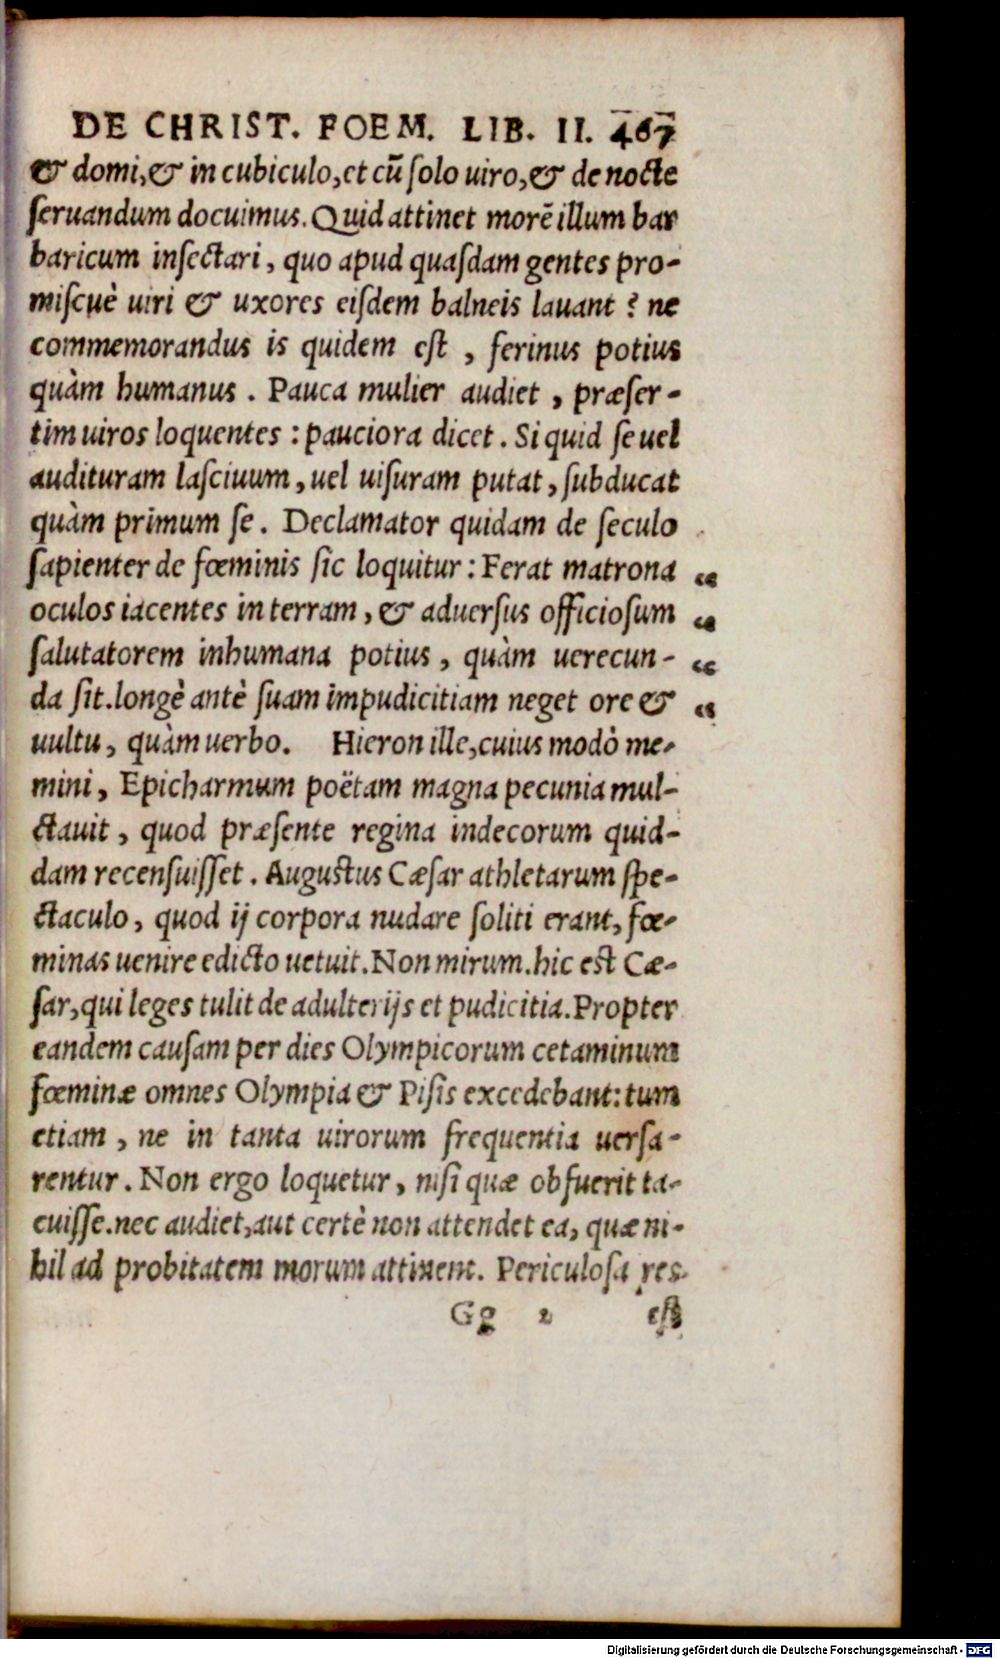 DE CHRIST. FOEM. LIB. II. 467
& domi, & in cubiculo, et cū ſolo uiro, & de nocte
ſeruandum docuimus. Quid attinet morē illum bar
baricum inſectari, quo apud quaſdam gentes pro-
miſcuè uiri & uxores eiſdem balneis lauant? ne
commemorandus is quidem eſt, ferinus potius
quàm humanus. Pauca mulier audiet, præſer-
tim uiros loquentes: pauciora dicet. Si quid ſe uel
audituram laſciuum, uel uiſuram putat, ſubducat
quàm primum ſe. Declamator quidam de ſeculo
ſapienter de fœminis ſic loquitur: Ferat matrona “
oculos iacentes in terram, & aduerſus officioſum “
ſalutatorem inhumana potius, quàm uerecun- “
da ſit. longè antè ſuam impudicitiam neget ore & “
uultu, quàm uerbo. Hieron ille, cuius modò me-
mini, Epicharmum poëtam magna pecunia mul-
ctauit, quod præſente regina indecorum quid-
dam recenſuiſſet. Auguſtus Cæſar athletarum ſpe-
ctaculo, quod ij corpora nudare ſoliti erant, fœ-
minas uenire edicto uetuit. Non mirum. hic eſt Cæ-
ſar, qui leges tulit de adulterijs et pudicitia. Propter
eandem cauſam per dies Olympicorum cetaminum
fœminæ omnes Olympia & Piſis excedebant: tum
etiam, ne in tanta uirorum frequentia uerſa-
rentur. Non ergo loquetur, niſi quæ obfuerit ta-
cuiſſe. nec audiet, aut certè non attendet ea, quæ ni-
hil ad probitatem morum attinent. Periculoſa res
Gg 2 eſt
Digitalisierung gefördert durch die Deutsche Forschungsgemeinschaft - DFG